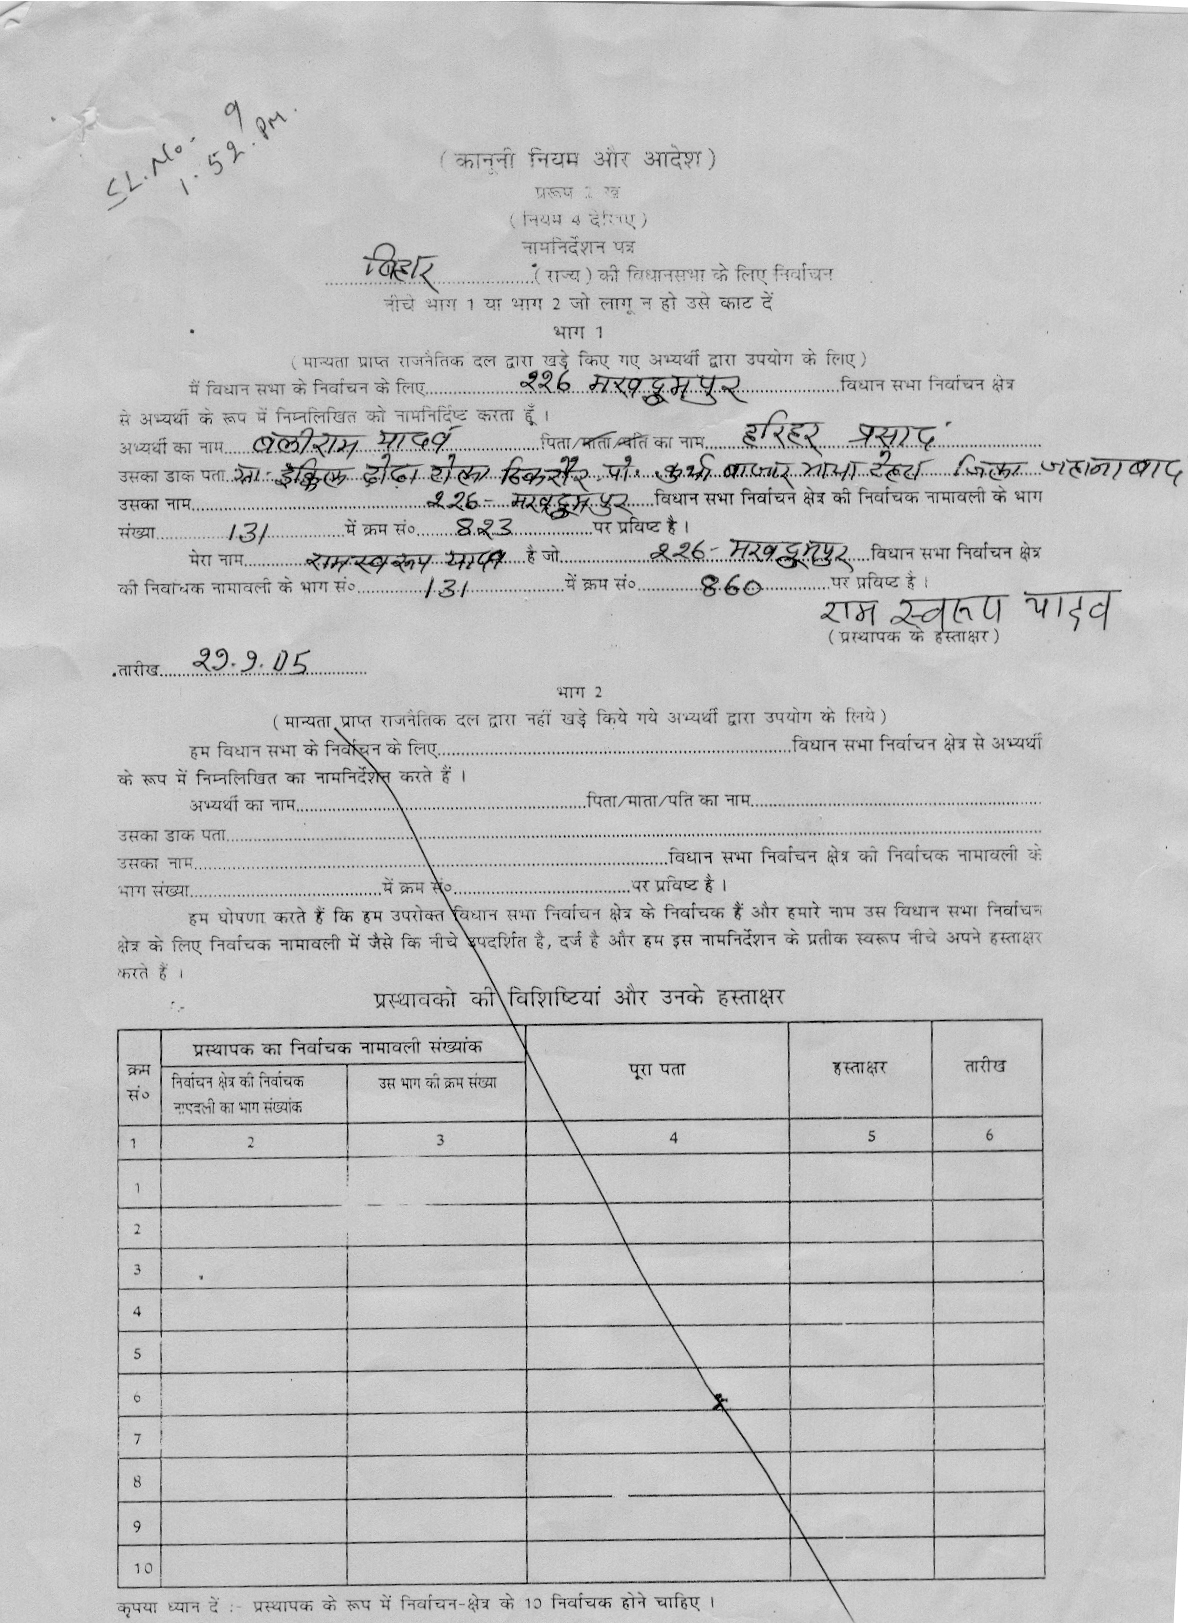 SL.No- 9
1.52.PM.
( कानूनी नियम और आदेश )
प्ररूप 2 ख
( नियम 4 देखिए )
नामनिर्देशन पत्र
बिहार (राज्य) की विधानसभा के लिए निर्वाचन
नीचे भाग 1 या भाग 2 जो लागू न हो उसे काट दें
भाग 1
( मान्यता प्राप्त राजनैतिक दल द्वारा खड़े किए गए अभ्यर्थी द्वारा उपयोग के लिए )
मैं विधान सभा के निर्वाचन के लिए 226 मखदुमपुर विधान सभा निर्वाचन क्षेत्र
से अभ्यर्थी के रूप में निम्नलिखित को नामनिर्दिष्ट करता हूँ ।
अभ्यर्थी का नाम बलीराम यादव पिता/माता/पति का नाम हरिहर प्रसाद
उसका डाक पता टोला पो. बाजार जिला जहानाबाद
उसका नाम 226- मखदुमपुर विधान सभा निर्वाचन क्षेत्र की निर्वाचक नामावली के भाग
संख्या 131 में क्रम सं० 823 पर प्रविष्ट है ।
मेरा नाम रामस्वरूप यादव है जो 226- मखदुमपुर विधान सभा निर्वाचन क्षेत्र
की निर्वाचक नामावली के भाग सं० 131 में क्रम सं० 860 पर प्रविष्ट है ।
राम स्वरूप यादव
( प्रस्थापक के हस्ताक्षर )
तारीख 29.9.05
भाग 2
( मान्यता प्राप्त राजनैतिक दल द्वारा नहीं खड़े किये गये अभ्यर्थी द्वारा उपयोग के लिये )
हम विधान सभा के निर्वाचन के लिए विधान सभा निर्वाचन क्षेत्र से अभ्यर्थी
के रूप में निम्नलिखित का नामनिर्देशन करते हैं ।
अभ्यर्थी का नाम पिता/माता/पति का नाम
उसका डाक पता
उसका नाम विधान सभा निर्वाचन क्षेत्र की निर्वाचक नामावली के
भाग संख्या में क्रम सं० पर प्रविष्ट है ।
हम घोषणा करते हैं कि हम उपरोक्त विधान सभा निर्वाचन क्षेत्र के निर्वाचक हैं और हमारे नाम उस विधान सभा निर्वाचन
क्षेत्र के लिए निर्वाचक नामावली में जैसे कि नीचे उपदर्शित है, दर्ज है और हम इस नामनिर्देशन के प्रतीक स्वरूप नीचे अपने हस्ताक्षर
करते हैं ।
प्रस्थावको की विशिष्टियां और उनके हस्ताक्षर
क्रम सं० प्रस्थापक का निर्वाचक नामावली संख्यांक पूरा पता हस्ताक्षर तारीख
निर्वाचन क्षेत्र की निर्वाचक उस भाग की क्रम संख्या
का भाग संख्यांक
1 2 3 4 5 6
1
2
3
4
5
6
7
8
9
10
कृपया ध्यान दें :- प्रस्थापक के रूप में निर्वाचन-क्षेत्र के 10 निर्वाचक होने चाहिए ।